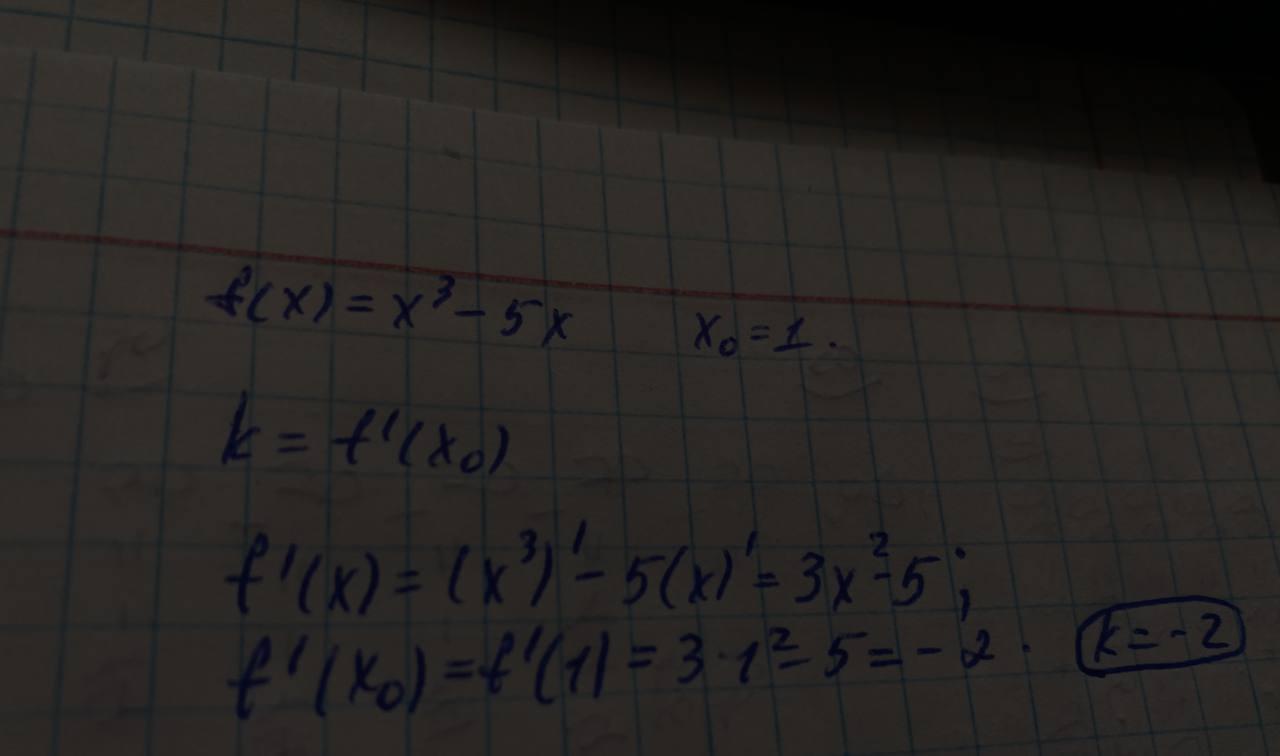 f(x) = x³ - 5x x₀ = 1.
k = f'(x₀)
f'(x) = (x³)' - 5(x)' = 3x² - 5;
f'(x₀) = f'(1) = 3·1² - 5 = -2. k = -2